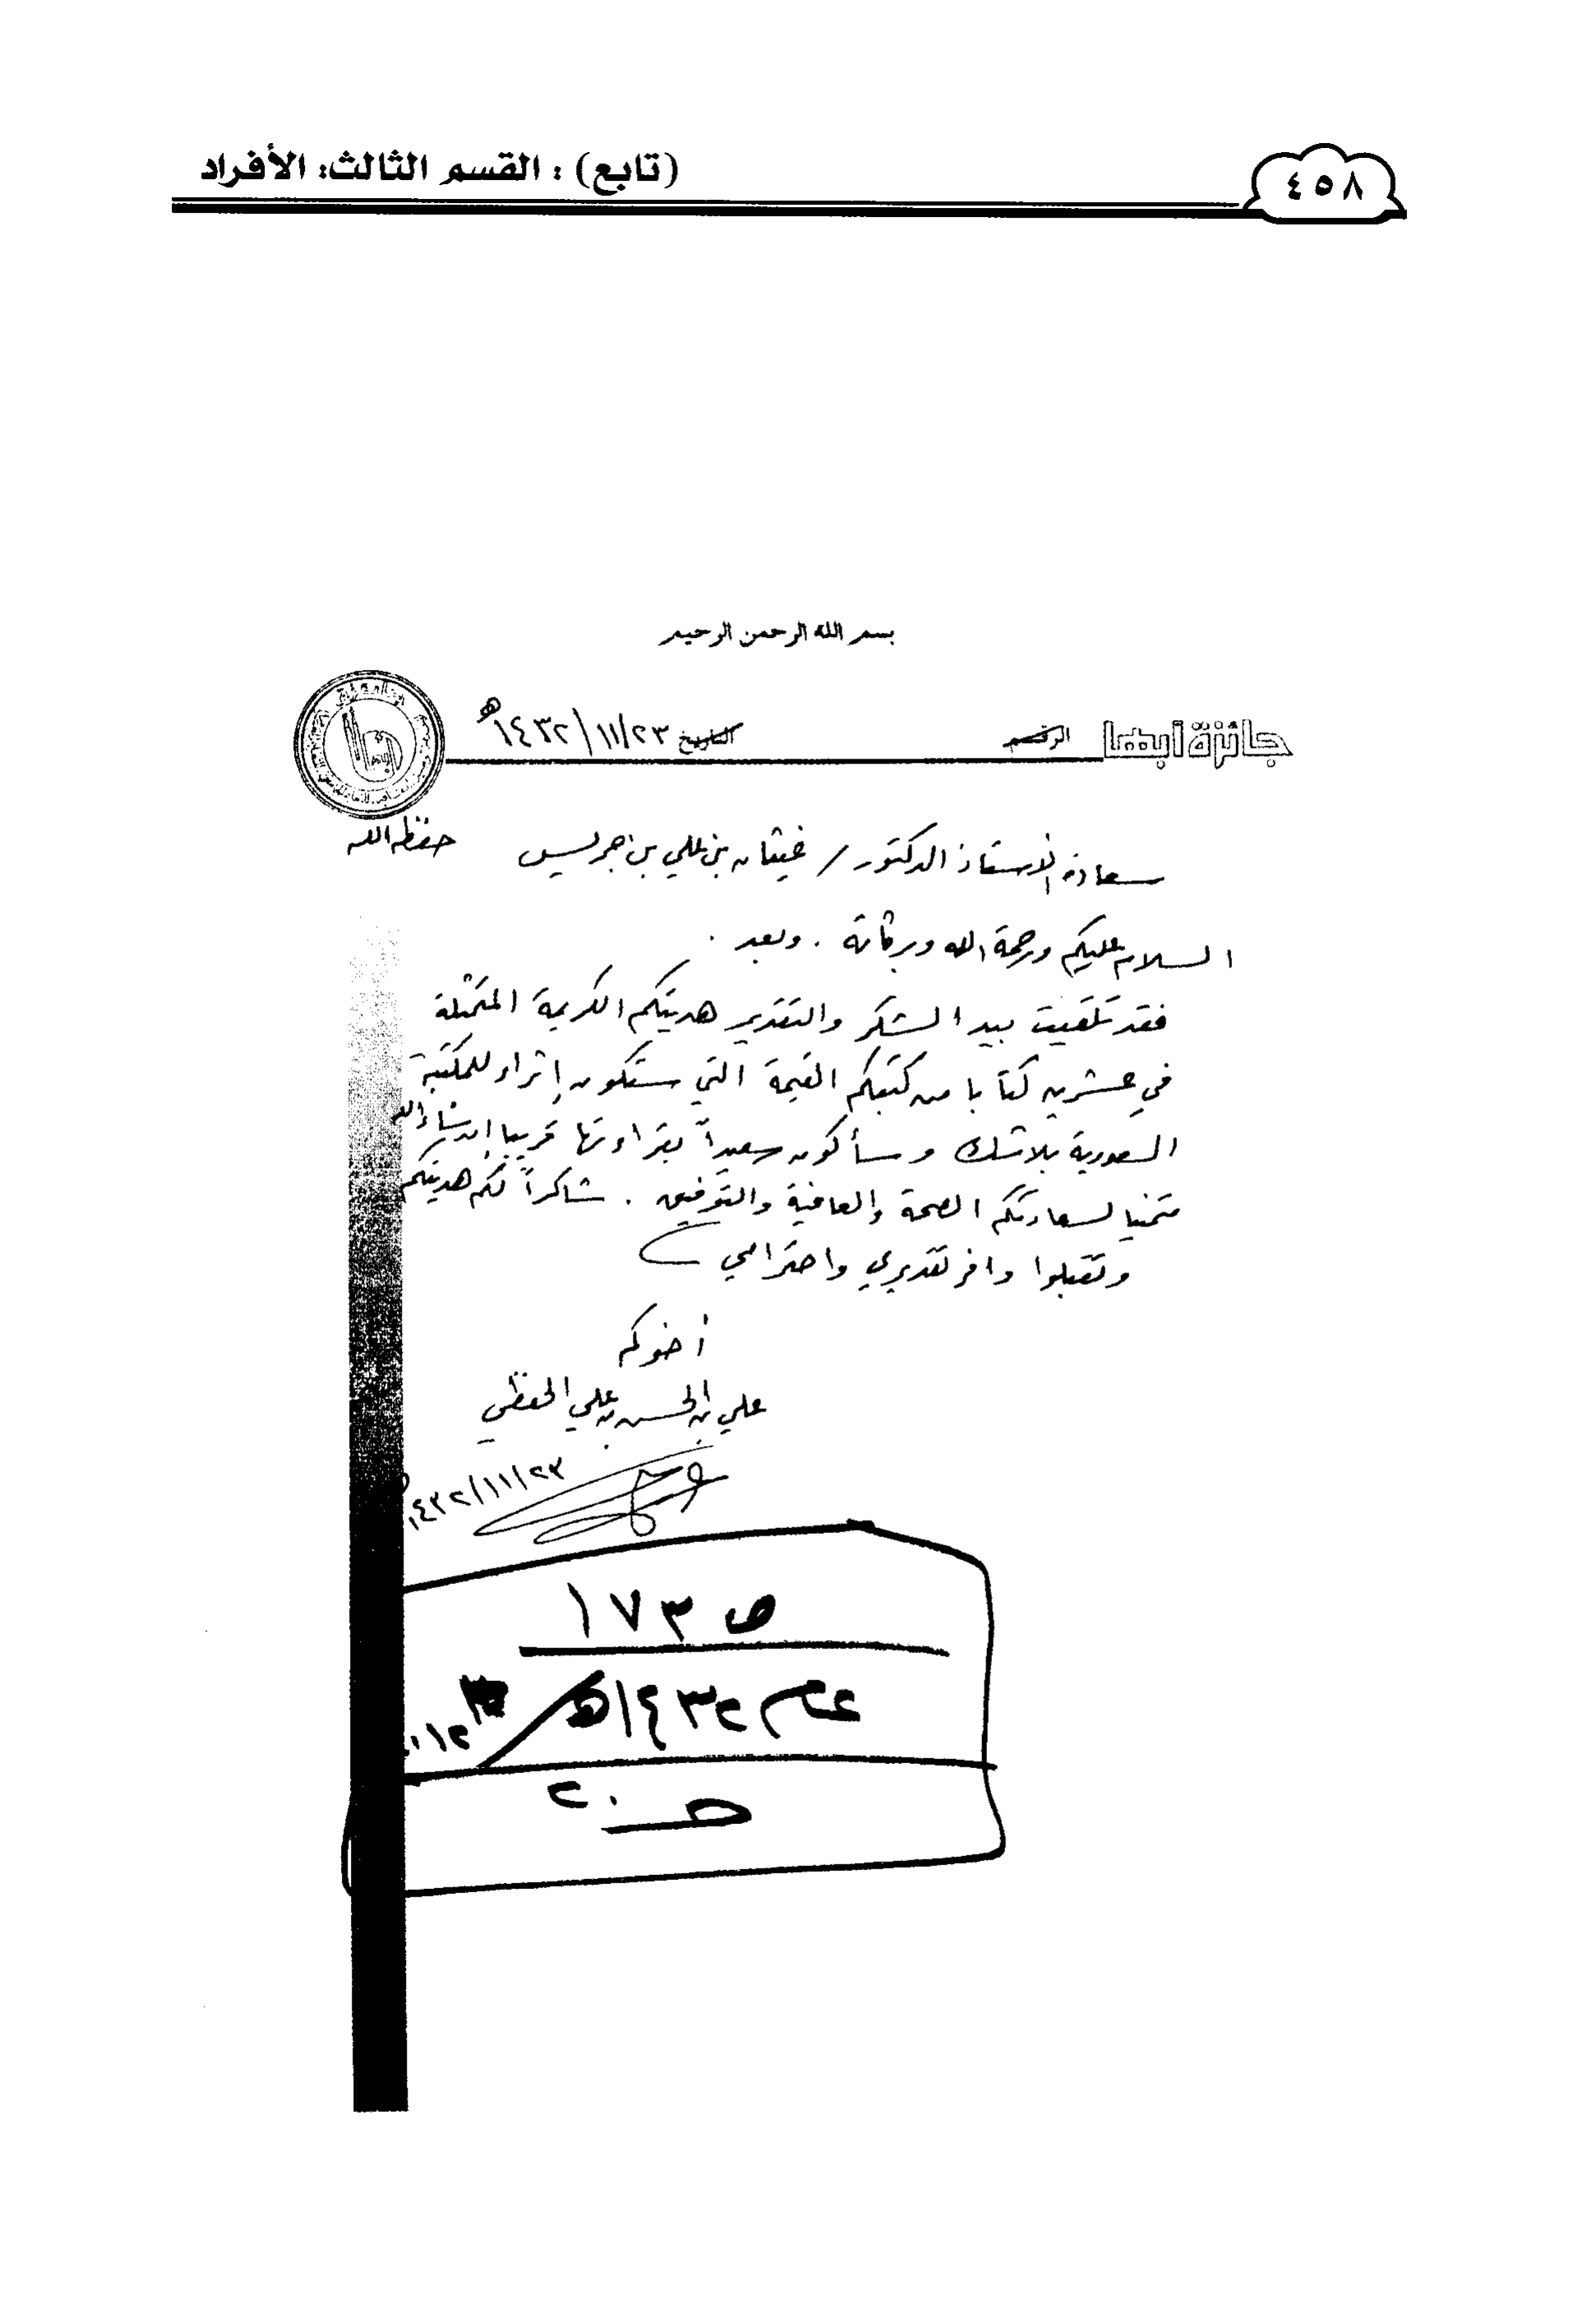 ٤٥٨
(تابع) : القسم الثالث: الأفراد
بسم الله الرحمن الرحيم
جائزة أبها الرقم التاريخ ١٤٣٢/١١/٢٣هـ
سعادة الأستاذ الدكتور / غيثان بن علي بن جريس حفظه الله
السلام عليكم ورحمة الله وبركاته . وبعد .
فقد تلقيت بيد الشكر والتقدير هديتكم الكريمة المتمثلة
في عشرين كتابا من كتبكم القيمة التي ستكون إثراء للمكتبة
السعودية بلاشك وسأكون سعيداً بقراءتها قريبا إن شاء الله
متمنيا لسعادتكم الصحة والعافية والتوفيق . شاكراً لكم هديتكم
وتقبلوا وافر تقديري واحترامي
أخوكم
علي بن الحسن بن علي الحفظي
١٤٣٢/١١/٢٣
ص ١٧٣
عام ١٤٣٢هـ /
حـ ٢٠